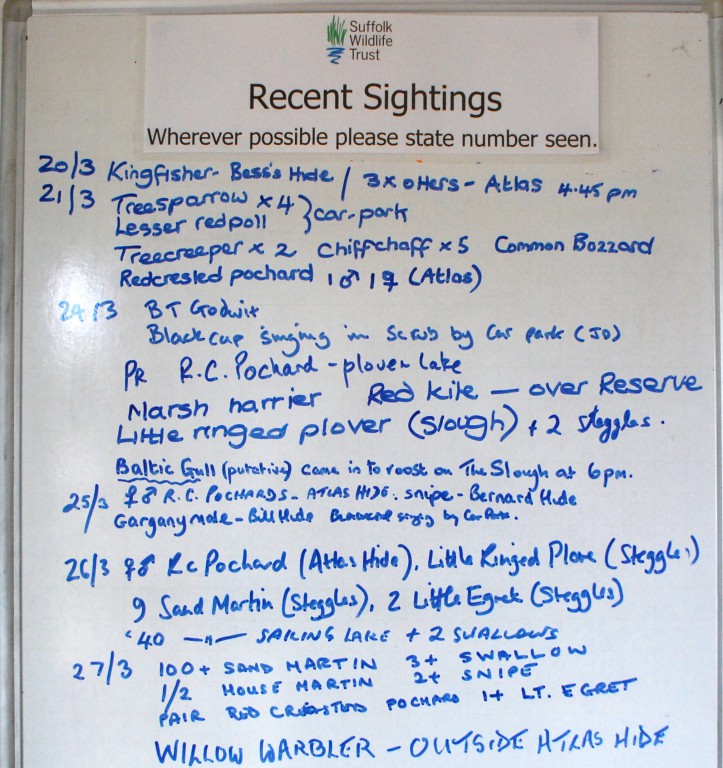 Suffolk
Wildlife
Trust
Recent Sightings
Wherever possible please state number seen.
20/3 Kingfisher - Bess's Hide / 3 x others - Atlas 4.45 pm
21/3 Treesparrow x 4 } car-park
Lesser redpoll
Treecreeper x 2 Chiffchaff x 5 Common Bozzard
Redcrested pochard 1♂ 1♀ (Atlas)
24/3 BT Godwit
Blackcap singing in scrub by Car park (JD)
PR R.C. Pochard - plover lake
Marsh harrier Red kite — over Reserve
Little ringed plover (Slough) + 2 Steggles.
Baltic Gull (putative) came in to roost on The Slough at 6pm.
25/3 ♀♂ R.C. POCHARDS - ATLAS HIDE. Snipe - Bernard Hide
Garganymale - Bill Hide singing by Car Park.
26/3 ♀♂ Rc Pochard (Atlas Hide), Little Ringed Plover (Steggles)
9 Sand Martin (Steggles), 2 Little Egret (Steggles)
40 —"— SAILING LAKE + 2 SWALLOWS
27/3 100+ SAND MARTIN 3+ SWALLOW
1/2 HOUSE MARTIN 2+ SNIPE
PAIR RED CRESTED POCHARD 1+ LT. EGRET
WILLOW WARBLER - OUTSIDE ATLAS HIDE